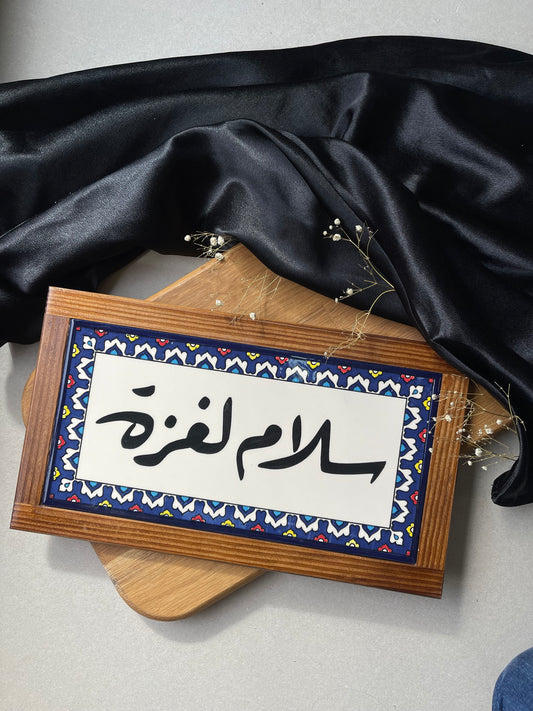 سلام لغزة